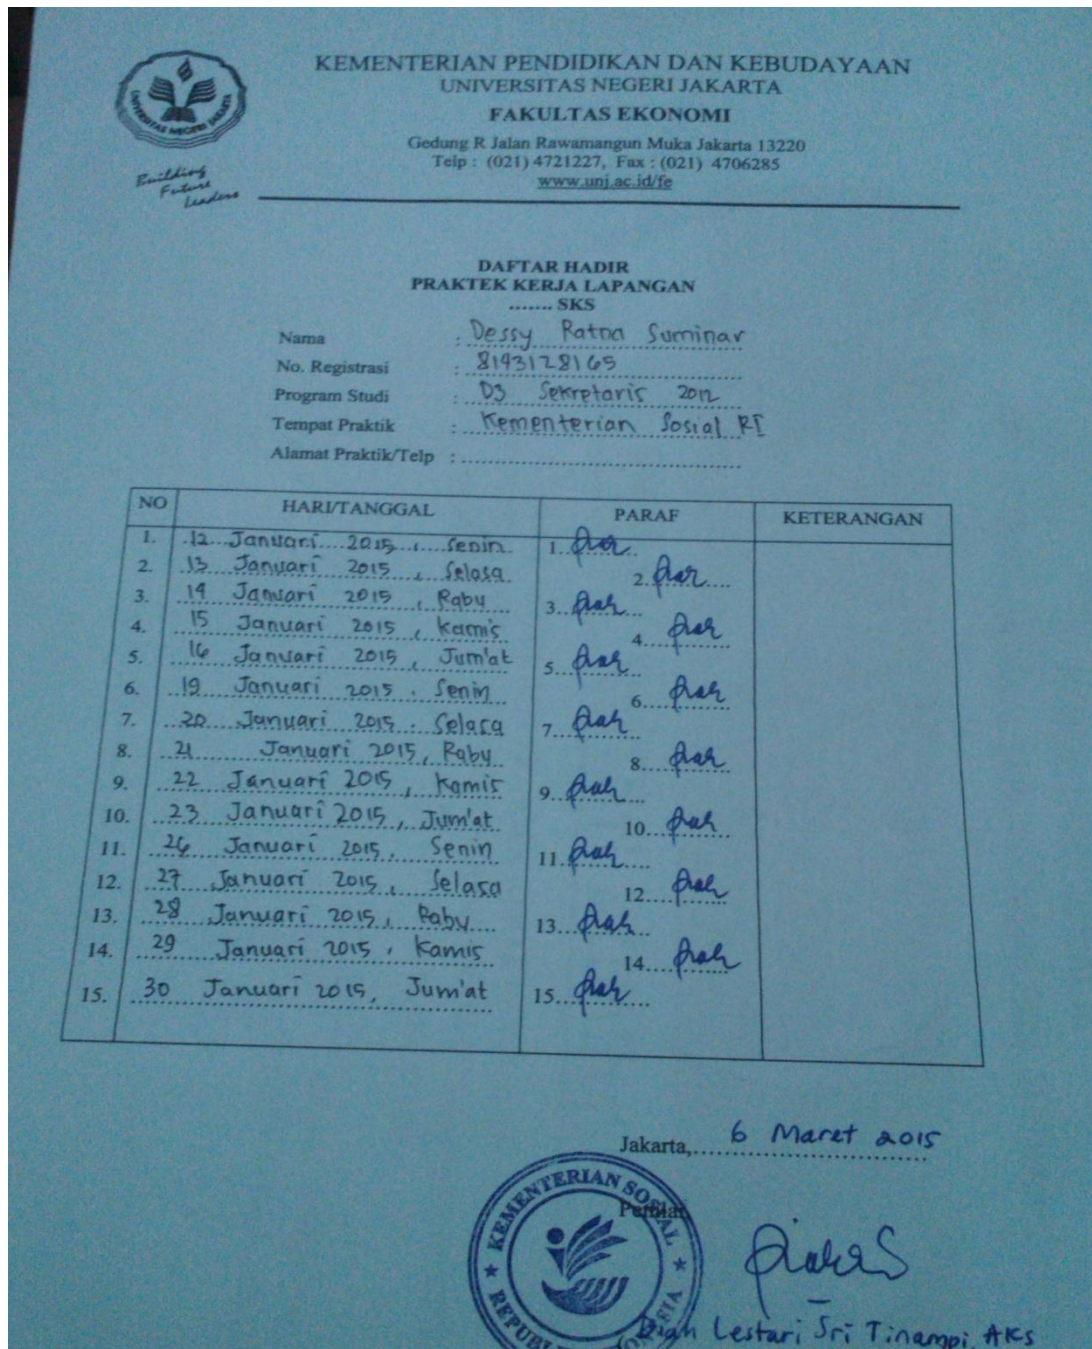 KEMENTERIAN PENDIDIKAN DAN KEBUDAYAAN
UNIVERSITAS NEGERI JAKARTA
FAKULTAS EKONOMI
Gedung R Jalan Rawamangun Muka Jakarta 13220
Telp : (021) 4721227, Fax : (021) 4706285
www.unj.ac.id/fe
UNIVERSITAS NEGERI JAKARTA
Building
Future
Leaders
DAFTAR HADIR
PRAKTEK KERJA LAPANGAN
....... SKS
Nama : Dessy Ratna Suminar
No. Registrasi : 8143128165
Program Studi : D3 Sekretaris 2012
Tempat Praktik : Kementerian Sosial RI
Alamat Praktik/Telp :
NO HARI/TANGGAL PARAF KETERANGAN
1. 12 Januari 2015, Senin 1.
2. 13 Januari 2015, Selasa 2.
3. 14 Januari 2015, Rabu 3.
4. 15 Januari 2015, Kamis 4.
5. 16 Januari 2015, Jum'at 5.
6. 19 Januari 2015. Senin 6.
7. 20 Januari 2015. Selasa 7.
8. 21 Januari 2015, Rabu 8.
9. 22 Januari 2015, Kamis 9.
10. 23 Januari 2015, Jum'at 10.
11. 26 Januari 2015, Senin 11.
12. 27 Januari 2015, Selasa 12.
13. 28 Januari 2015, Rabu 13.
14. 29 Januari 2015, Kamis 14.
15. 30 Januari 2015, Jum'at 15.
Jakarta, 6 Maret 2015
KEMENTERIAN SOSIAL
Lestari Sri Tinampi, AKs